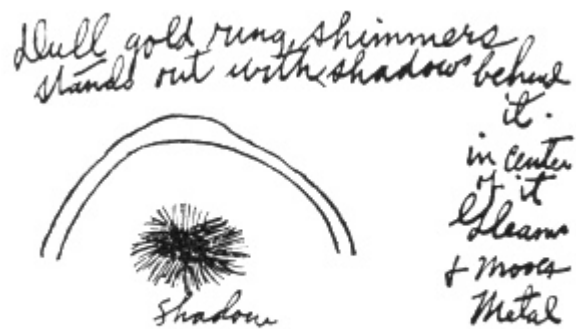 Dull gold rung, shimmers
stands out with shadow behind
it.
in center
of it
Gleams
& moves
Metal
Shadow